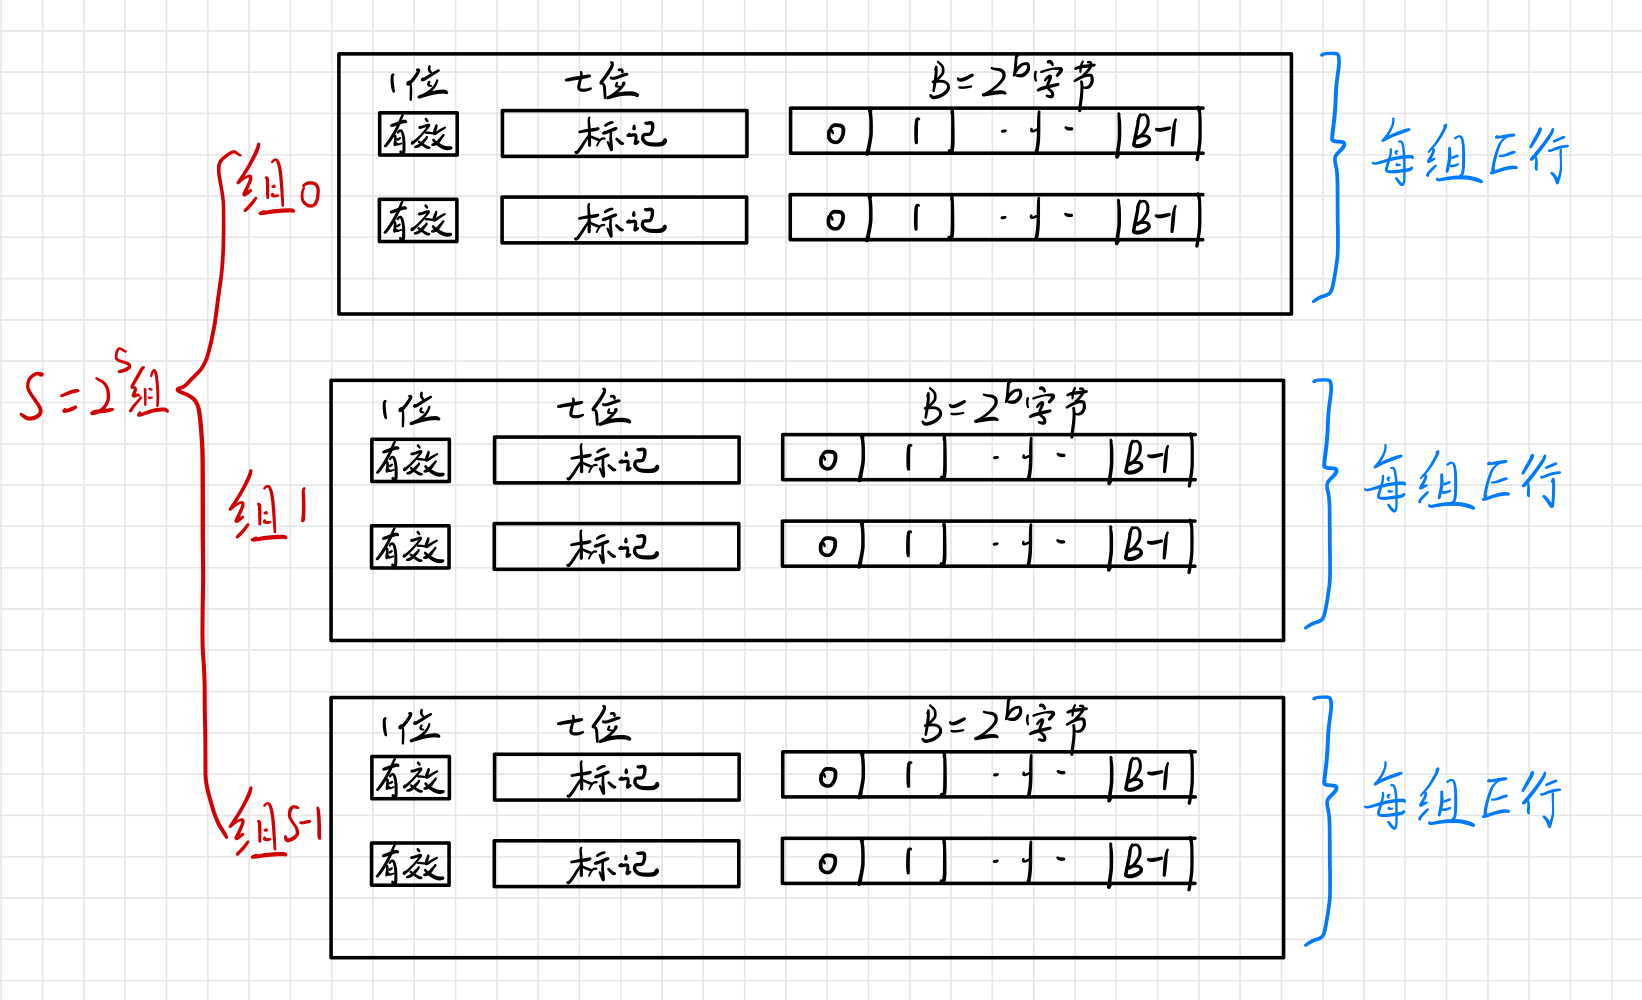 1位 t位 B=2^b字节
有效 标记 0 1 ... B-1
有效 标记 0 1 ... B-1
组0
每组E行
S=2^s组
1位 t位 B=2^b字节
有效 标记 0 1 ... B-1
有效 标记 0 1 ... B-1
组1
每组E行
1位 t位 B=2^b字节
有效 标记 0 1 ... B-1
有效 标记 0 1 ... B-1
组S-1
每组E行